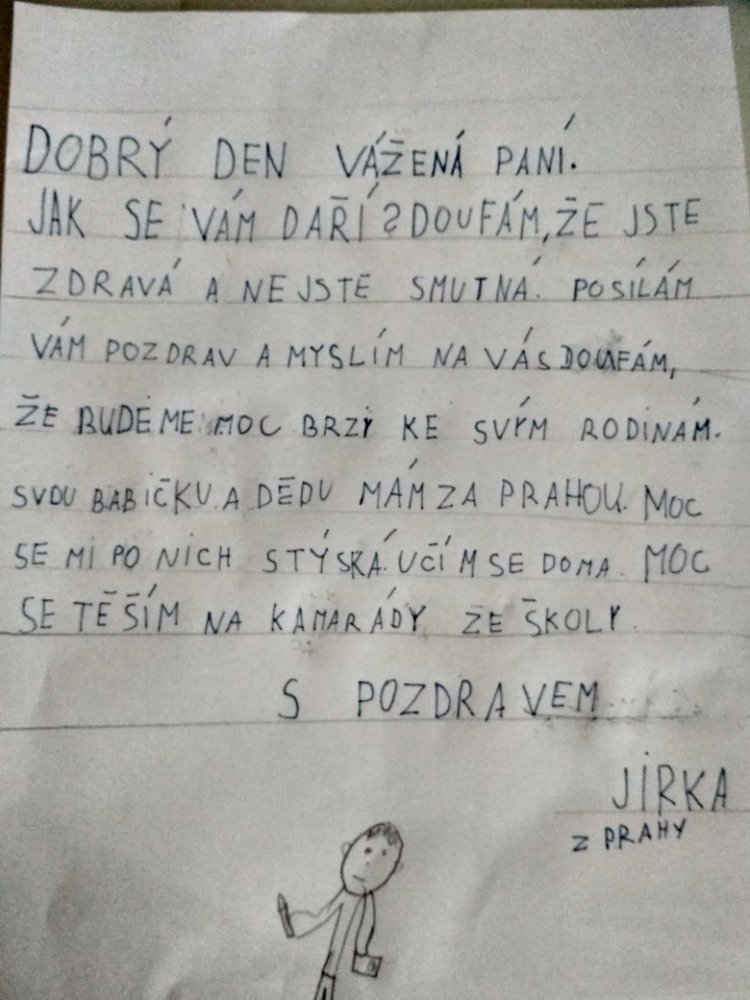 DOBRÝ DEN VÁŽENÁ PANÍ.
JAK SE VÁM DAŘÍ? DOUFÁM, ŽE JSTE
ZDRAVÁ A NEJSTE SMUTNÁ. POSÍLÁM
VÁM POZDRAV A MYSLÍM NA VÁS DOUFÁM,
ŽE BUDEME MOC BRZY KE SVÝM RODINÁM.
SVOU BABIČKU A DĚDU MÁM ZA PRAHOU. MOC
SE MI PO NICH STÝSKÁ. UČÍM SE DOMA. MOC
SE TĚŠÍM NA KAMARÁDY ŽE ŠKOLY.
S POZDRAVEM
JIRKA
Z PRAHY